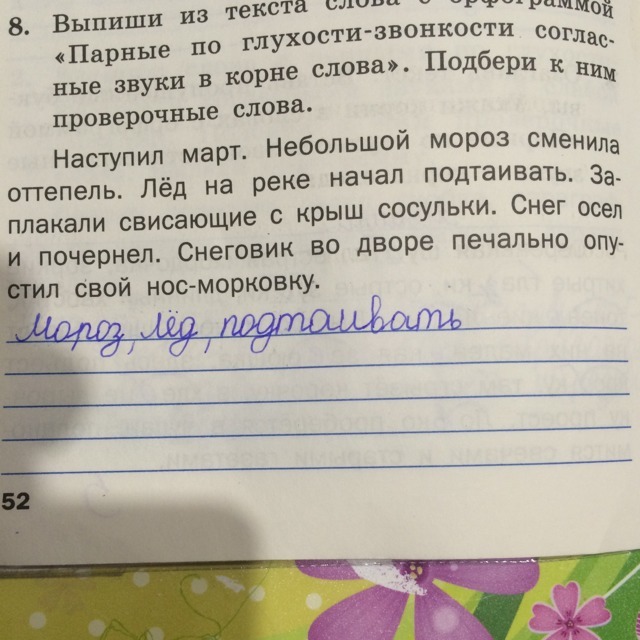 8. Выпиши из текста слова с орфограммой
«Парные по глухости-звонкости соглас-
ные звуки в корне слова». Подбери к ним
проверочные слова.
Наступил март. Небольшой мороз сменила
оттепель. Лёд на реке начал подтаивать. За-
плакали свисающие с крыш сосульки. Снег осел
и почернел. Снеговик во дворе печально опу-
стил свой нос-морковку.
мороз, лёд, подтаивать
52